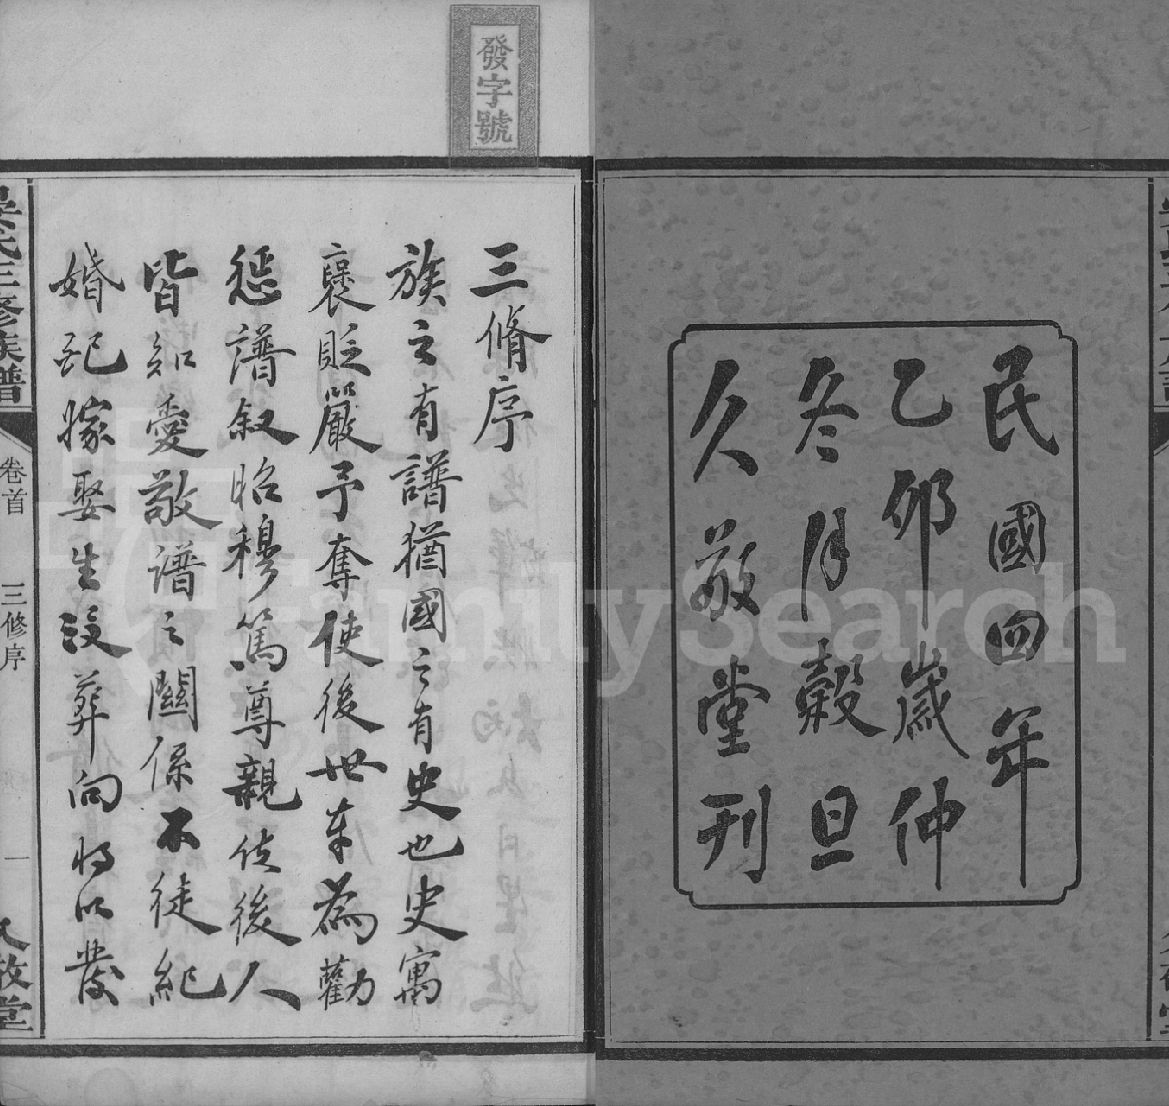 民國四年
乙卯歲仲
冬月穀旦
久敬堂刊
發字號
三脩序
族之有譜猶國之有史也史寓
褒貶嚴予奪使後世有為勸
懲譜叙昭穆篤尊親使後人
皆知愛敬譜之關係不徒紀
婚配嫁娶生沒葬向將以發
氏三修族譜
卷首
三修序
一
久敬堂
FamilySearch